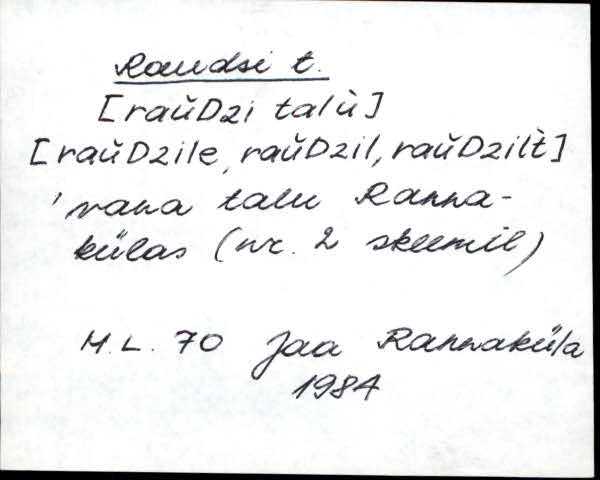 Raudsi t.
[raŭDzi talù]
[raŭDzile, raŭDzil, raŭDzilt̀]
'vana talu Ranna-
külas (nr. 2 skeemil)
M.L. 70 Jaa Rannaküla
1984